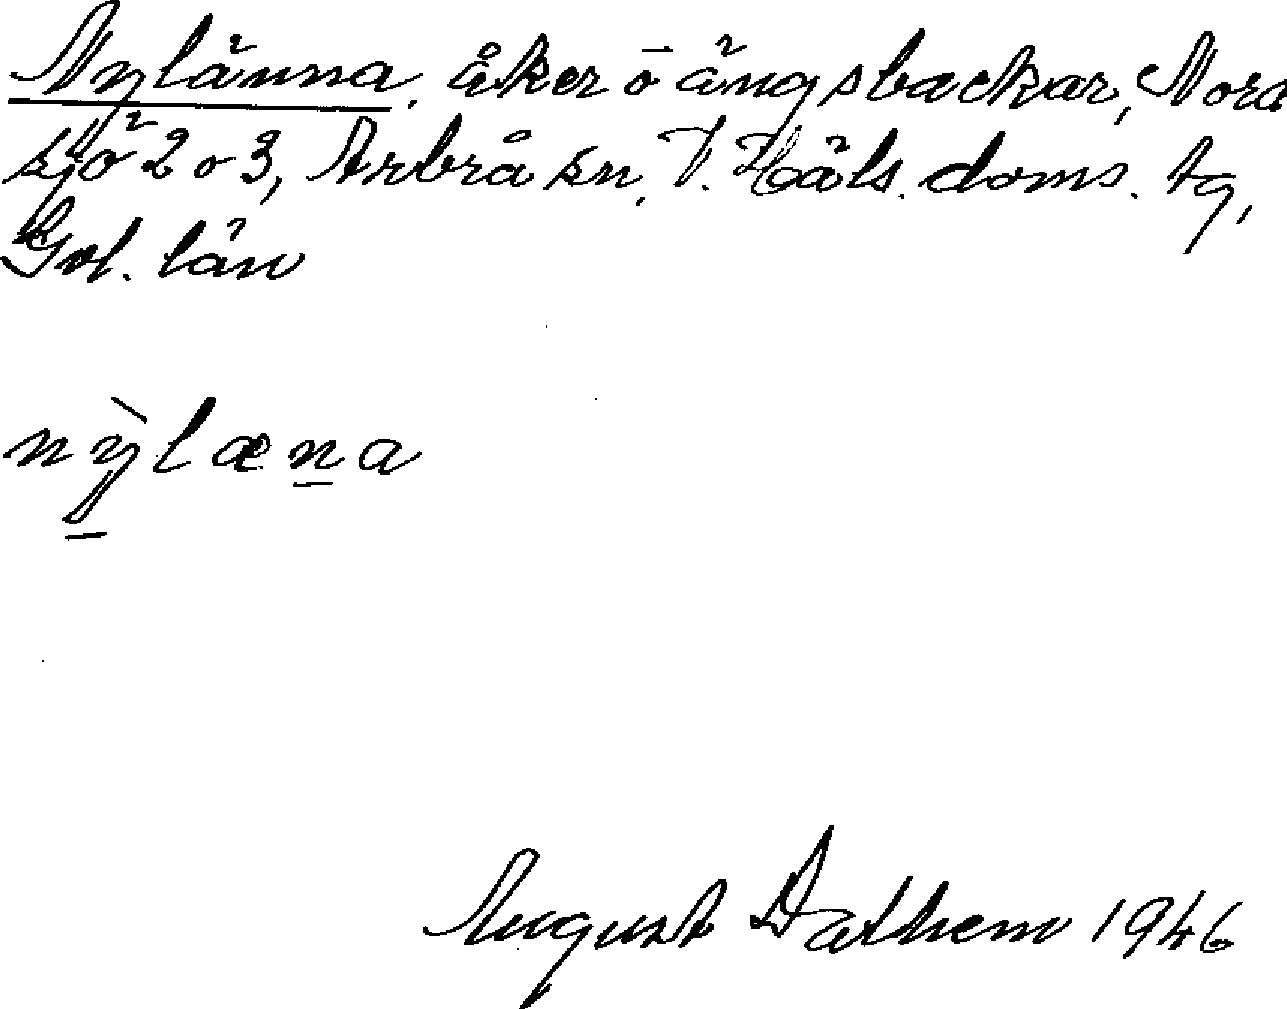 Nylänna, åker o ängsbackar, Nord
sjö 2 o 3, Arbrå sn, V. Häls. doms. tg,
Gvl. län
nỳlæna
August Dathem 1946